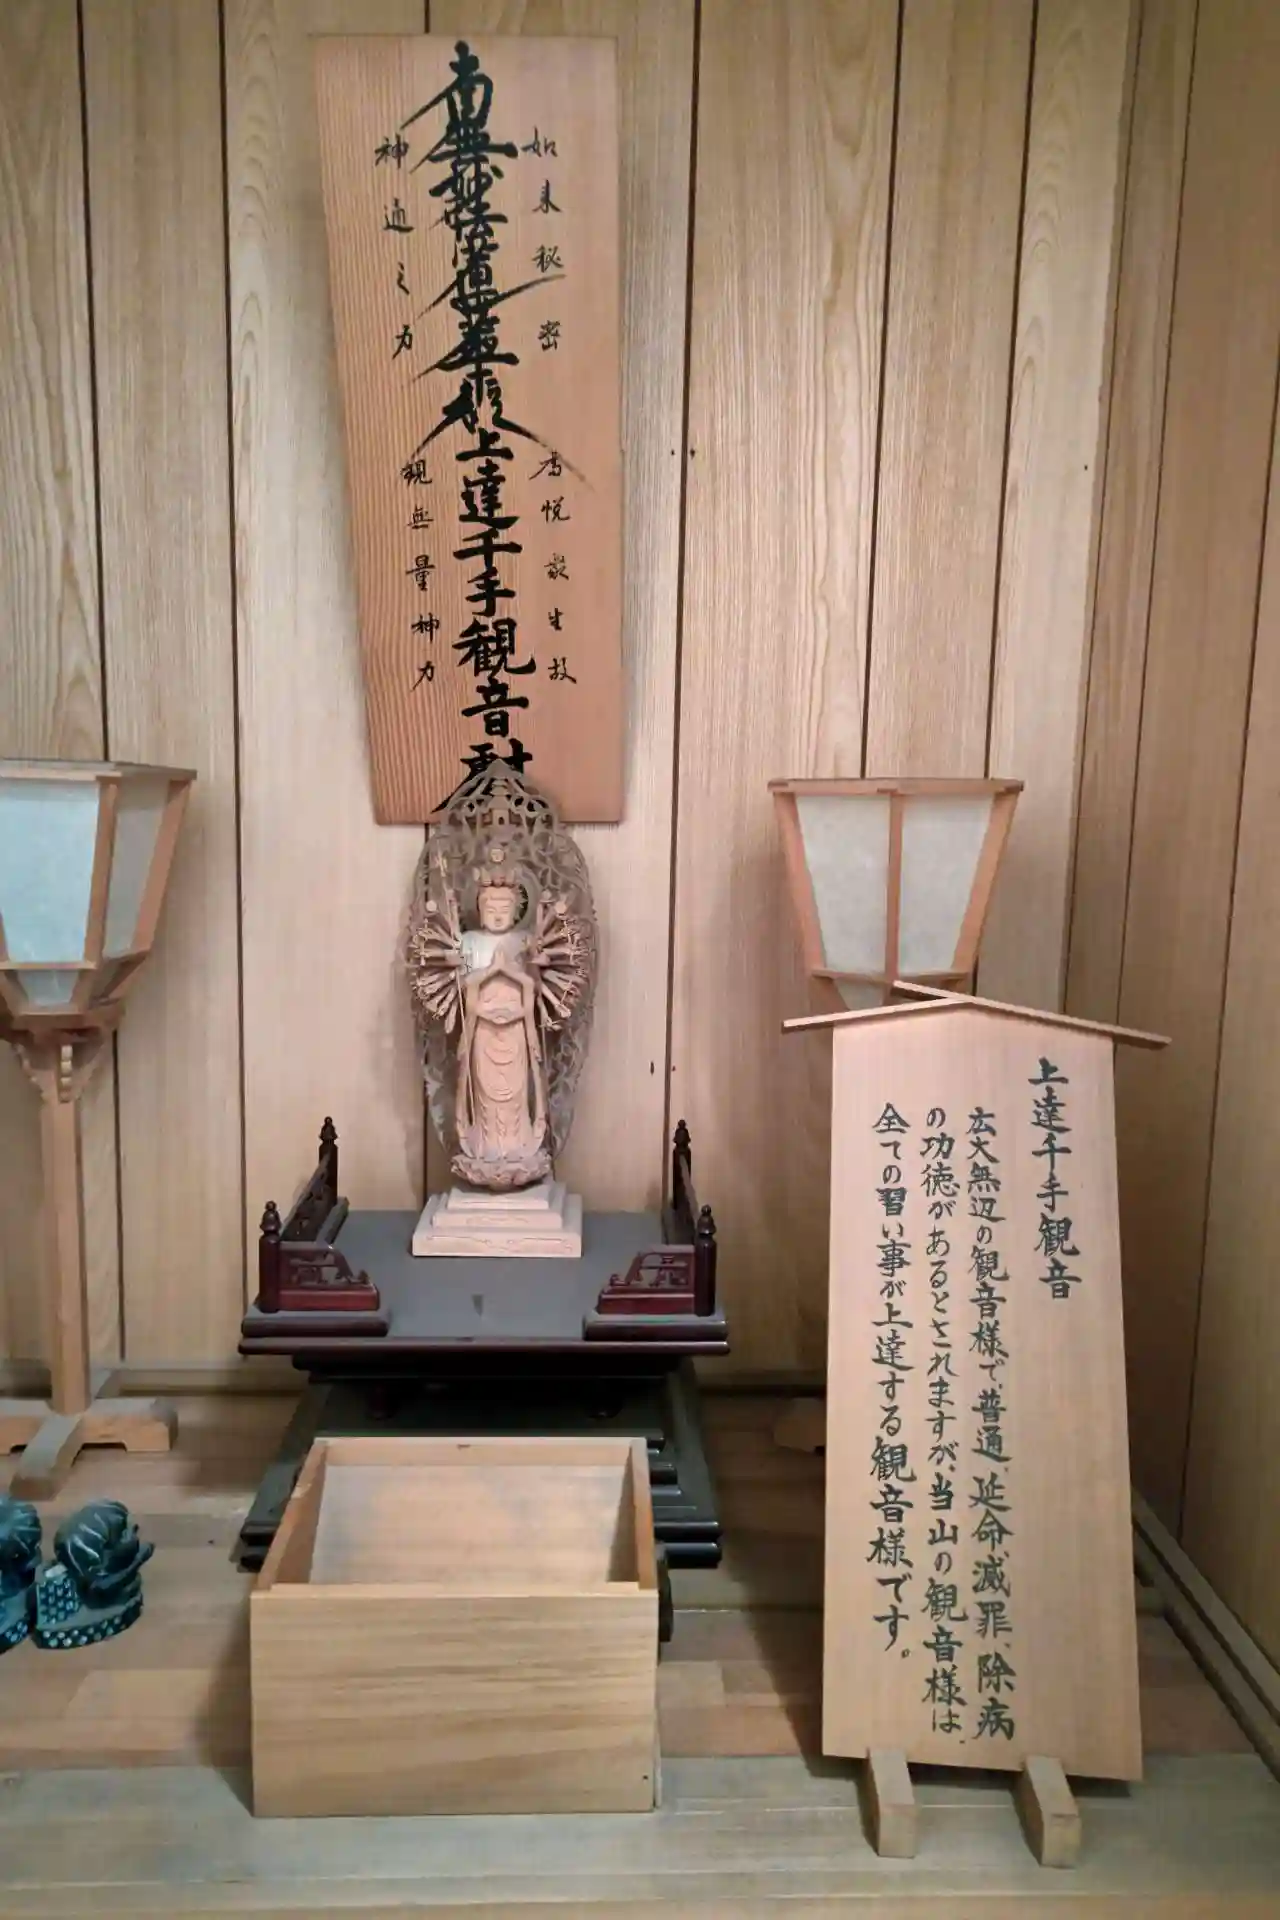 如来秘密
為悦衆生故
南無妙法蓮華経
上達千手観音
神通之力
現無量神力
上達千手観音
広大無辺の観音様で、普通、延命滅罪、除病
の功徳があるとされますが、当山の観音様は、
全ての習い事が上達する観音様です。